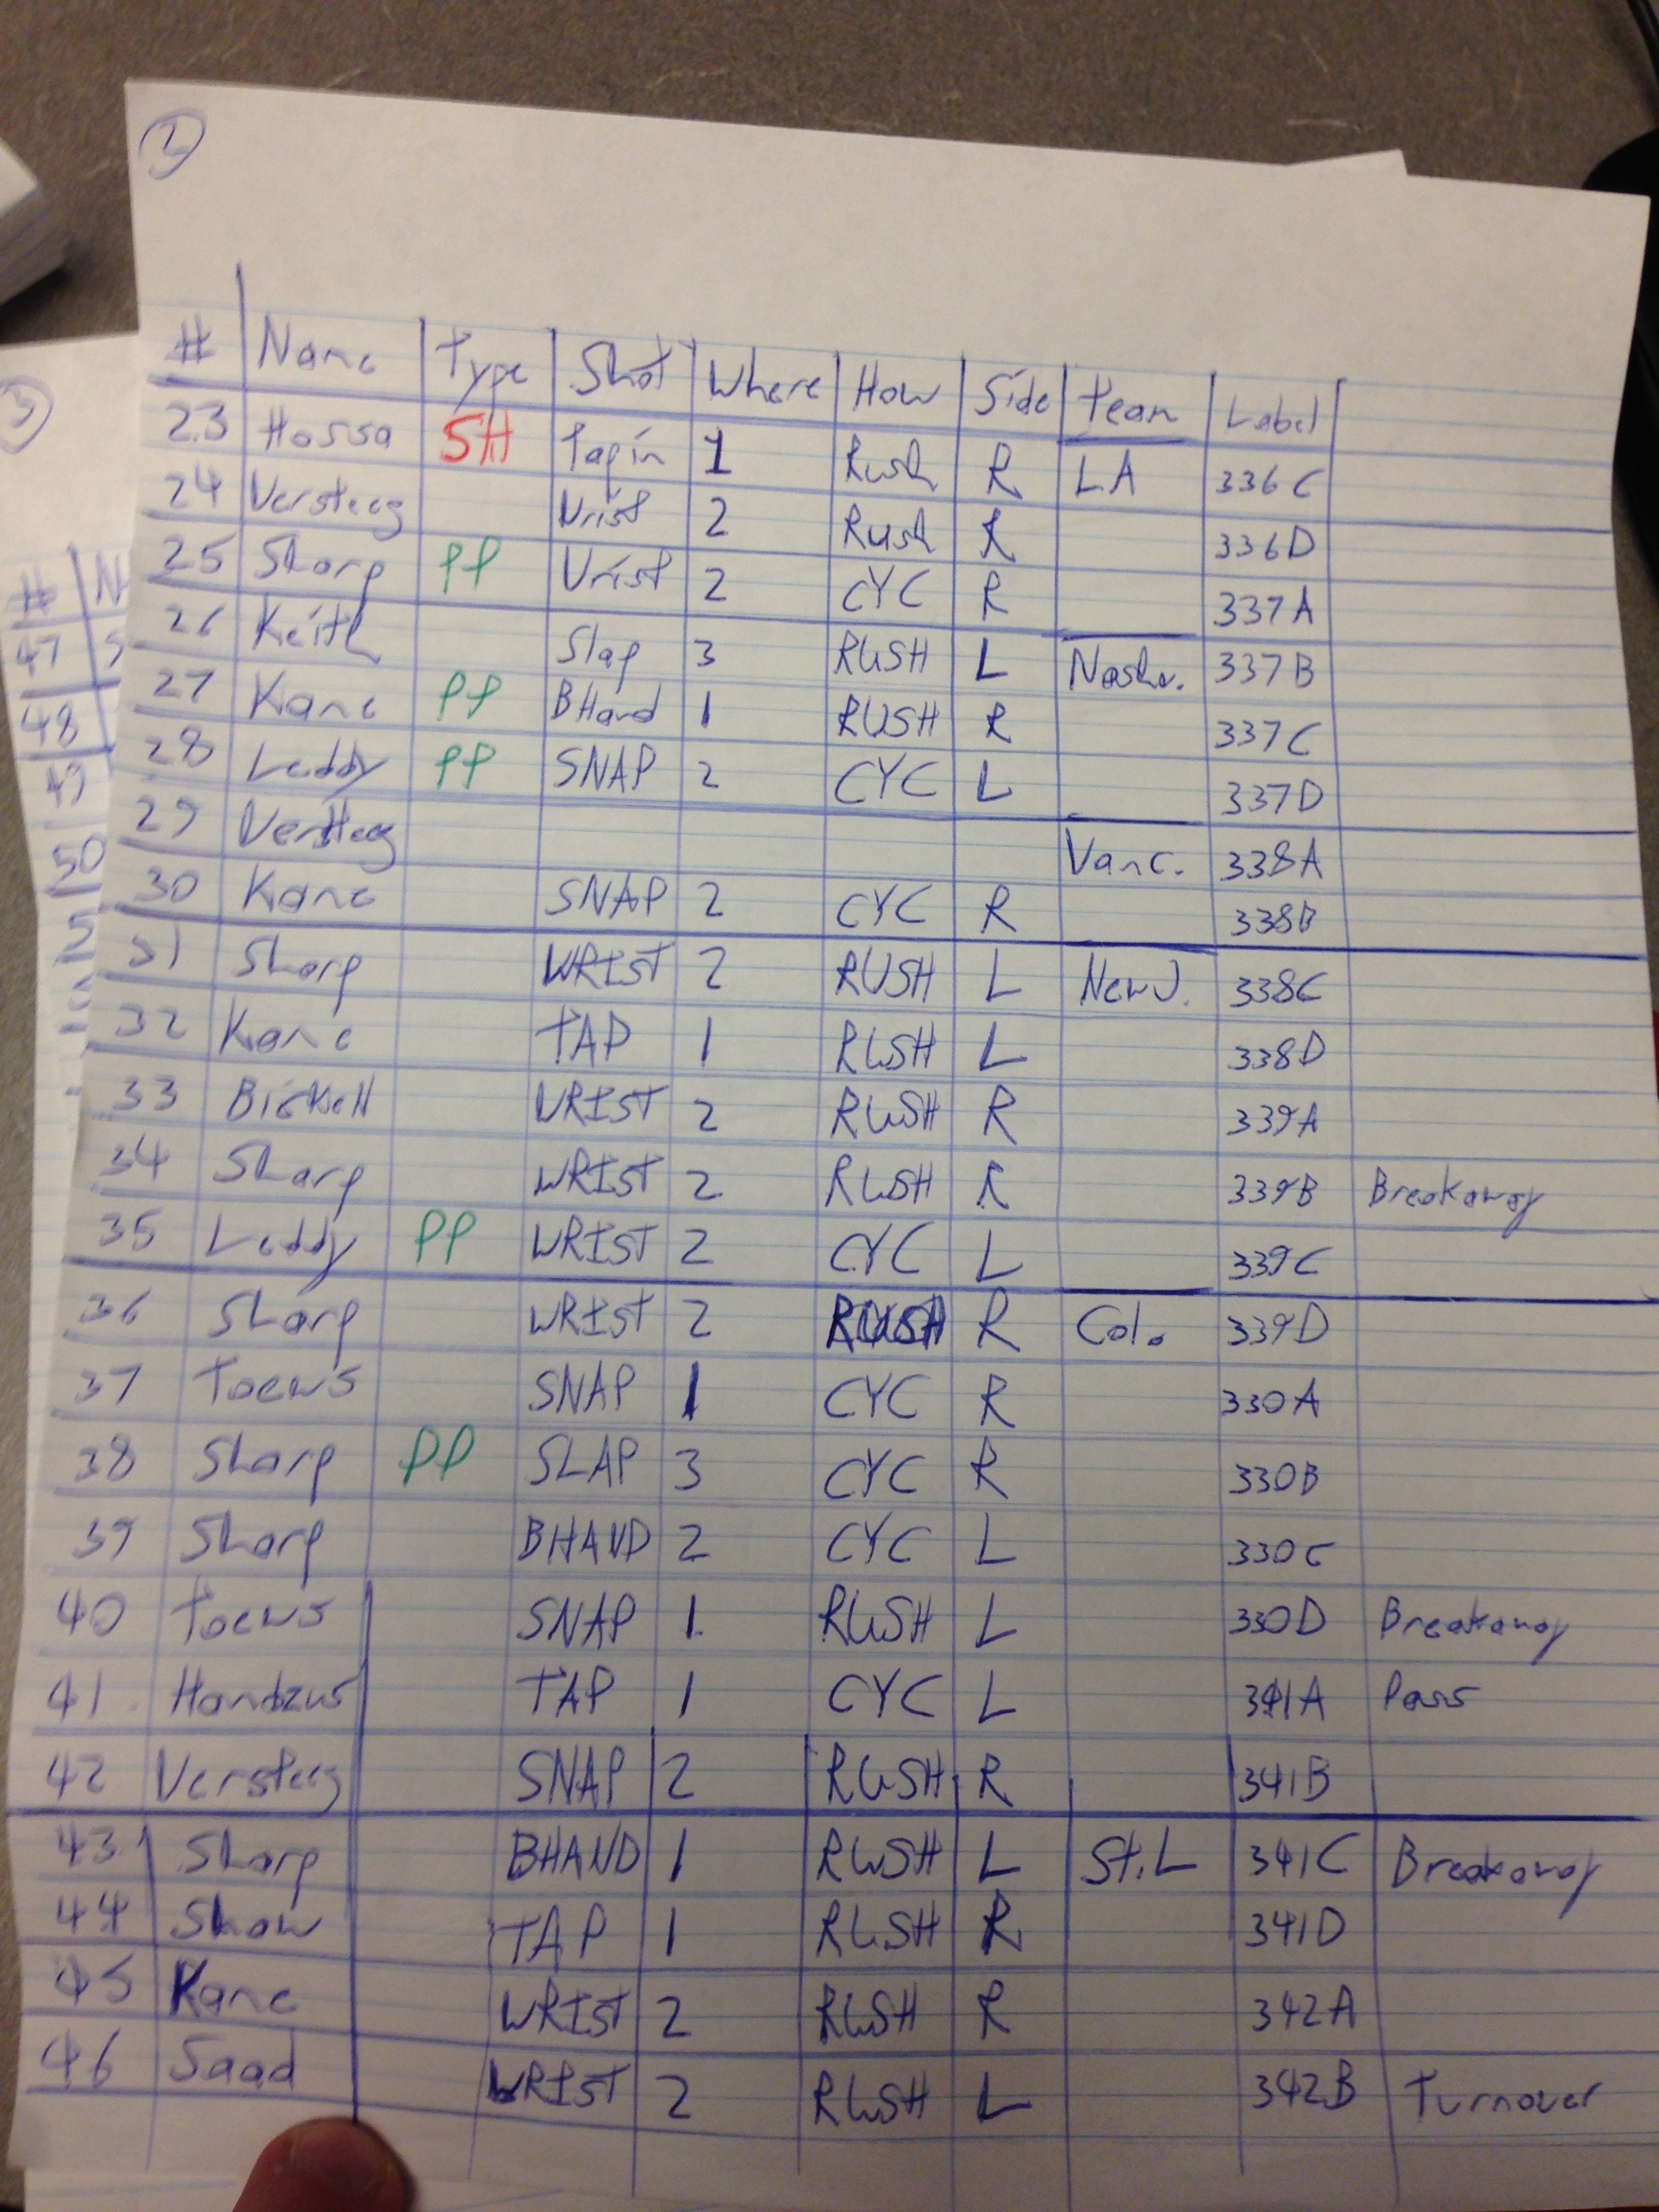 2
# Name Type Shot Where How Side Team Label
23 Hossa SH Tapin 1 Rush R LA 336C
24 Versteeg Wrist 2 Rush R 336D
25 Sharp PP Wrist 2 CYC R 337A
26 Keith Slap 3 RUSH L Nashv. 337B
27 Kane PP BHand 1 RUSH R 337C
28 Leddy PP SNAP 2 CYC L 337D
29 Versteeg Vanc. 338A
30 Kane SNAP 2 CYC R 338B
31 Sharp WRIST 2 RUSH L New J. 338C
32 Kane TAP 1 RUSH L 338D
33 Bickell WRIST 2 RUSH R 339A
34 Sharp WRIST 2 RUSH R 339B Breakaway
35 Leddy PP WRIST 2 CYC L 339C
36 Sharp WRIST 2 RUSH R Col. 339D
37 Toews SNAP 1 CYC R 330A
38 Sharp PP SLAP 3 CYC R 330B
39 Sharp BHAND 2 CYC L 330C
40 Toews SNAP 1 RUSH L 330D Breakaway
41 Handzus TAP 1 CYC L 341A Pass
42 Versteeg SNAP 2 RUSH R 341B
43 Sharp BHAND 1 RUSH L St.L 341C Breakaway
44 Shaw TAP 1 RUSH R 341D
45 Kane WRIST 2 RUSH R 342A
46 Saad WRIST 2 RUSH L 342B Turnover
3
#
47
48
49
50